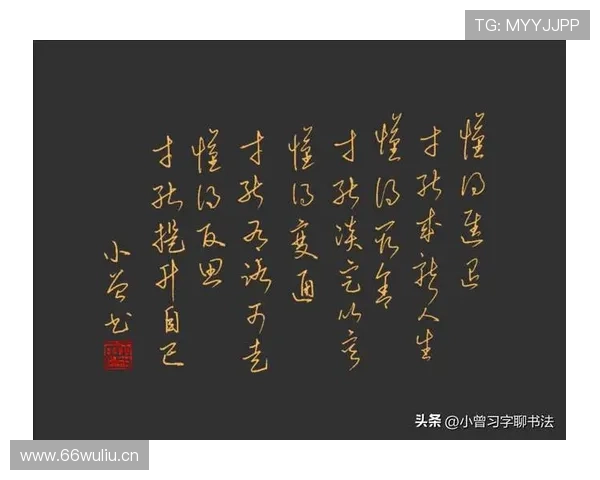 TG: MYYJJPP
懂得進退
才能成就人生
懂得取舍
才能淡定从容
懂得变通
才能有路可走
懂得反思
才能提升自己
小曾书
头条 @小曾习字聊书法
www.66wuliu.cn